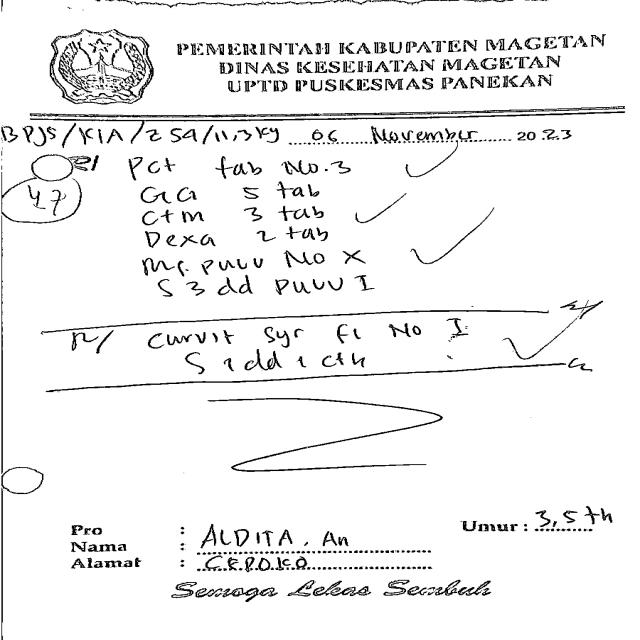 PEMERINTAH KABUPATEN MAGETAN
DINAS KESEHATAN MAGETAN
UPTD PUSKESMAS PANEKAN
BPJS/KIA/259/11,3 kg 06 November 2023
R/ Pct tab No. 3
47
GG 5 tab
Ctm 3 tab
Dexa 2 tab
Mf. puvv No X
S 3 dd puvv I
R/ Curvit Syr fl No I
S 1 dd 1 cth
Pro :
Nama : ALDITA. An Umur : 3,5 th
Alamat : CEPOKO
Semoga Lekas Sembuh